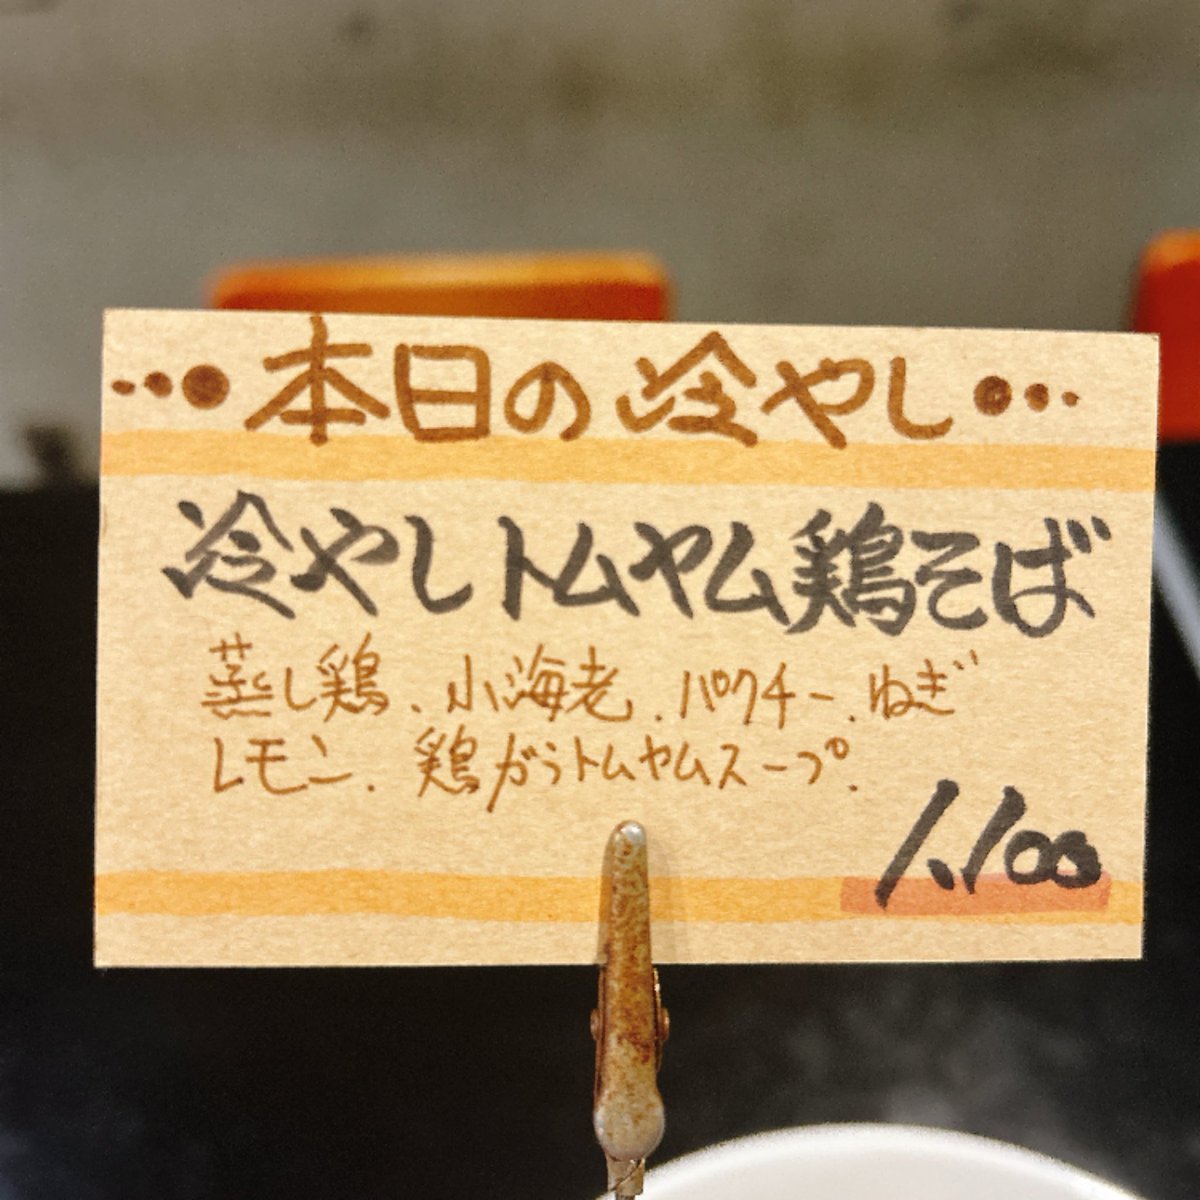 本日の冷やし
冷やしトムヤム鶏そば
蒸し鶏、小海老、パクチー、ねぎ
レモン、鶏がらトムヤムスープ、
1,100